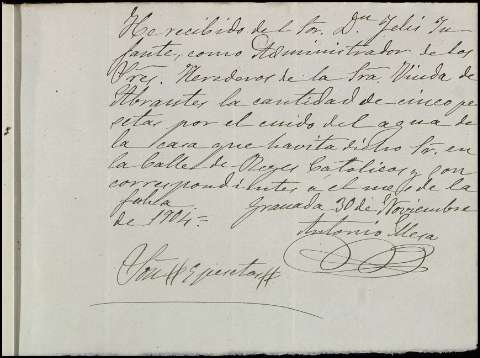 He recibido del Sr. Dn Felix In-
fante, como Administrador de los
Sres. Herederos de la Sra. Viuda de
Abrantes la cantidad de cinco pe
setas por el cuido del agua de
la casa que havita dicho Sr. en
la Calle de Reyes Catolicos y son
correspondientes a el mes de la
fecha Granada 30 de Noviembre
de 1904=
Antonio Mesa
Son # pesetas #